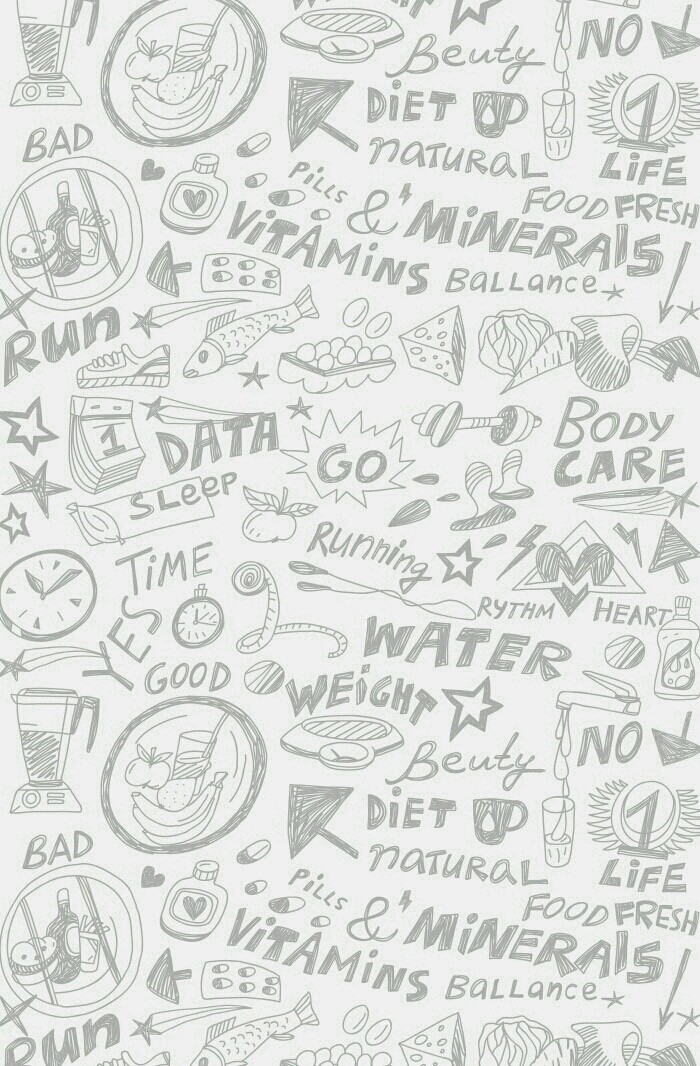 Beuty
NO
DiET
1
BAD
nATURAL
LiFE
PiLLS
FOOD FRESH
ViTAMiNS & MiNERAlS
BaLLance
Run
1
DATA
GO
BODY
CARE
SLeeP
Running
TiME
RYTHM HEART
YES
WATER
GOOD
WEiGHT
NO
Beuty
DiET
1
BAD
nATURAL
LiFE
PiLLS
FOOD FRESH
ViTAMiNS & MiNERAlS
BaLLance
Run